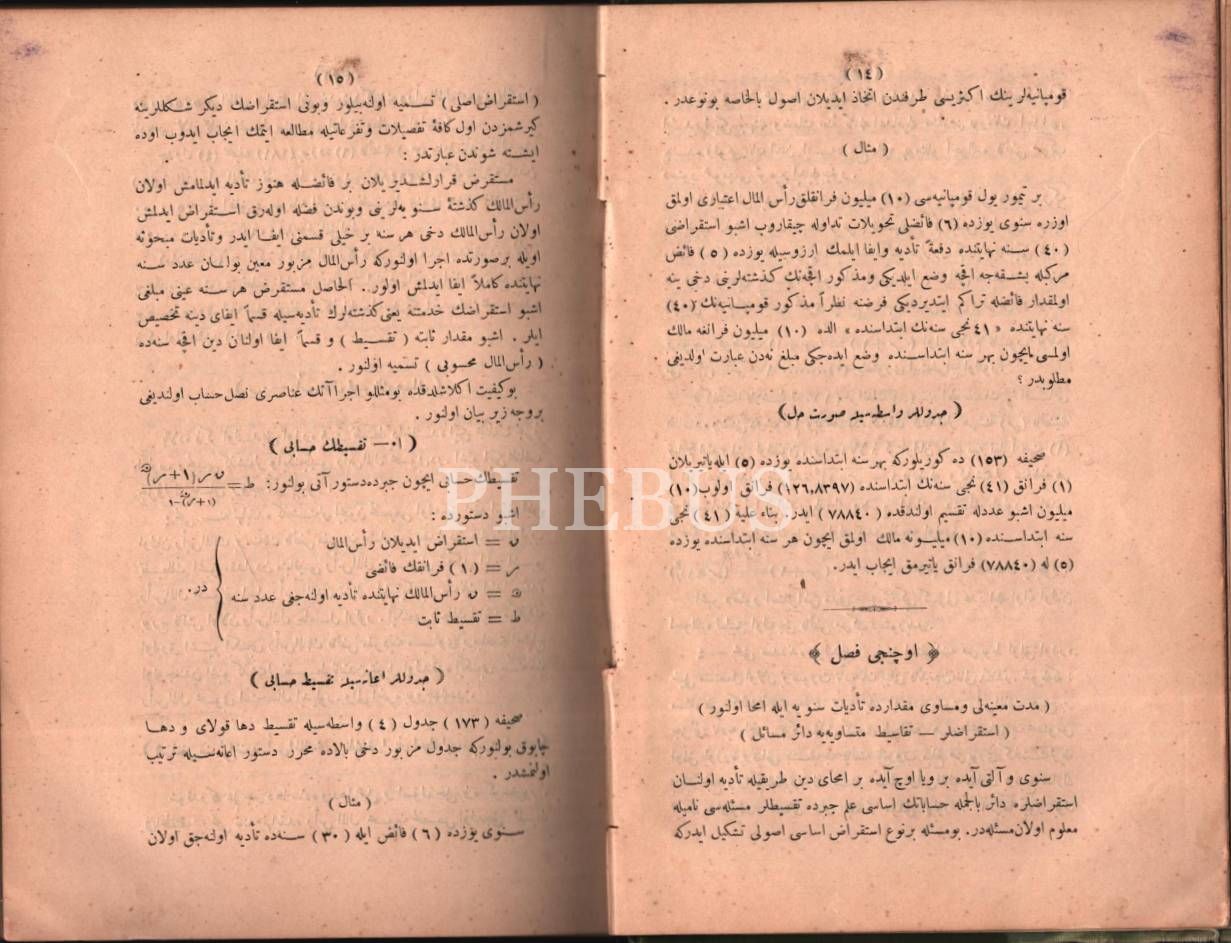 (١٤)
قومپانیه‌لرینك اكثریسی طرفندن اتخاذ ایدیلان اصول بالخاصه بونوعدر .
( مثال )
بر تیمور یول قومپانیه‌سی (١٠) میلیون فرانقلق رأس المال اعتباری اولمق
اوزره سنوی یوزده (٦) فائضلی تحویلات تداوله چیقاروب اشبو استقراضی
(٤٠) سنه نهایتنده دفعةً تأدیه وایفا ایلمك ارزوسیله یوزده (٥) فائض
مركبله بشقه‌جه اقچه وضع ایلدیكی ومذكور اقچه‌نك كذشته‌لرینی دخی ینه
اولمقدار فائضله تراكم ایتدیردیكی فرضنه نظراً مذكور قومپـانیه‌نك (٤٠)
سنه نهایتنده «٤١ نجی سنه‌نك ابتداسنده» الده (١٠) میلیون فرانغه مالك
اولمسی ایچون بهر سنه ابتداسـنده وضع ایده‌جكی مبلغ نه‌دن عبارت اولدیغی
مطلوبدر ؟
( جدوللر واسطه‌سیله صورت حل )
صحیفه (١٥٣) ده كوریلوركه بهر سنه ابتداسنده یوزده (٥) ایله یاتیریلان
(١) فرانق (٤١) نجی سنه‌نك ابتداسنده (١٢٦,٨٣٩٧) فرانق اولوب (١٠)
میلیون اشبو عددله تقسیم اولندقده (٧٨٨٤٠) ایدر. بناءً علیه (٤١) نجی
سنه ابتداسـنده (١٠) میلیـونه مالك اولمق ایچون هر سنه ابتداسنده یوزده
(٥) له (٧٨٨٤٠) فرانق یاتیرمق ایجاب ایدر.
﴿ اوچنجی فصل ﴾
( مدت معینه‌لی ومساوی مقدارده تأدیات سنویه ایله امحا اولنور )
( استقراضلر — تقاسیط متساویه‌یه دائر مسائل )
سنوی و آلتی آیده بر ویا اوچ آیده بر امحای دین طریقیله تأدیه اولنـان
استقراضلره دائر بالجمله حساباتك اساسی علم جبرده تقسیطلر مسئله‌سی نامیله
معلوم اولان مسئله‌در. بومسئله برنوع استقراض اساسی اصولی تشكیل ایدركه
(١٥)
( استقراض اصلی ) تسـمیه اولنه‌بیلور وبونی استقراضك دیكر شكللرینه
كیرشمزدن اول كافۀ تفصیلات وتفرعاتیله مطالعه ایتمك ایجاب ایدوب اوده
ایشته شوندن عبارتدر :
مستقرض قرارلشدیریلان بر فائضله هنوز تأدیه ایدلمامش اولان
رأس المالك كذشتۀ سنویه‌لرینی وبوندن فضله اوله‌رق استقراض ایدلمش
اولان رأس المالك دخی هر سنه بر خیلی قسمنی ایفـا ایدر وتأدیات مبحوثه
اویله برصورتده اجرا اولنوركه رأس المال مزبور معین بولنـان عدد سنه
نهایتنده كاملاً ایفا ایدلمش اولور. الحاصل مستقرض هر سـنه عینی مبلغی
اشبو استقراضك خدمتنه یعنی كذشته‌لرك تأدیه‌سیله قسماً ایفای دینه تخصیص
ایلر . اشبو مقدار ثابته ( تقسـیط ) و قسماً ایفا اولنان دین اقچه سنه‌ده
( رأس المال محسوبی ) تسمیه اولنور .
بوكیفیت اكلاشلدقده بومثللو اجراآتك عناصری نصل حساب اولندیغی
بروجه زیر بیان اولنور .
( ١° — تقسیطك حسابی )
تقسیطك حسابی ایچون جبرده دستور آتی بولنور: ط = ں ر (١+ر)ﻫ / (١+ر)ﻫ−١
اشبو دستورده :
ں = استقراض ایدیلان رأس المال
ر = (١) فرانقك فائضی
ﻫ = ں رأس المالك نهایتنده تأدیه اولنه‌جغی عدد سنه
ط = تقسیط ثابت
در.
( جدوللر اعانه‌سیله تقسیط حسابی )
صحیفه (١٧٣) جدول (٤) واسطه‌سیله تقسیط دها قولای و دهـا
چابوق بولنوركه جدول مزبور دخی بالاده محرر دستور اعانه‌سـیله ترتیب
اولنمشدر .
( مثال )
سـنوی یوزده (٦) فائض ایله (٣٠) سـنه‌ده تأدیه اولنه‌جق اولان
PHEBUS